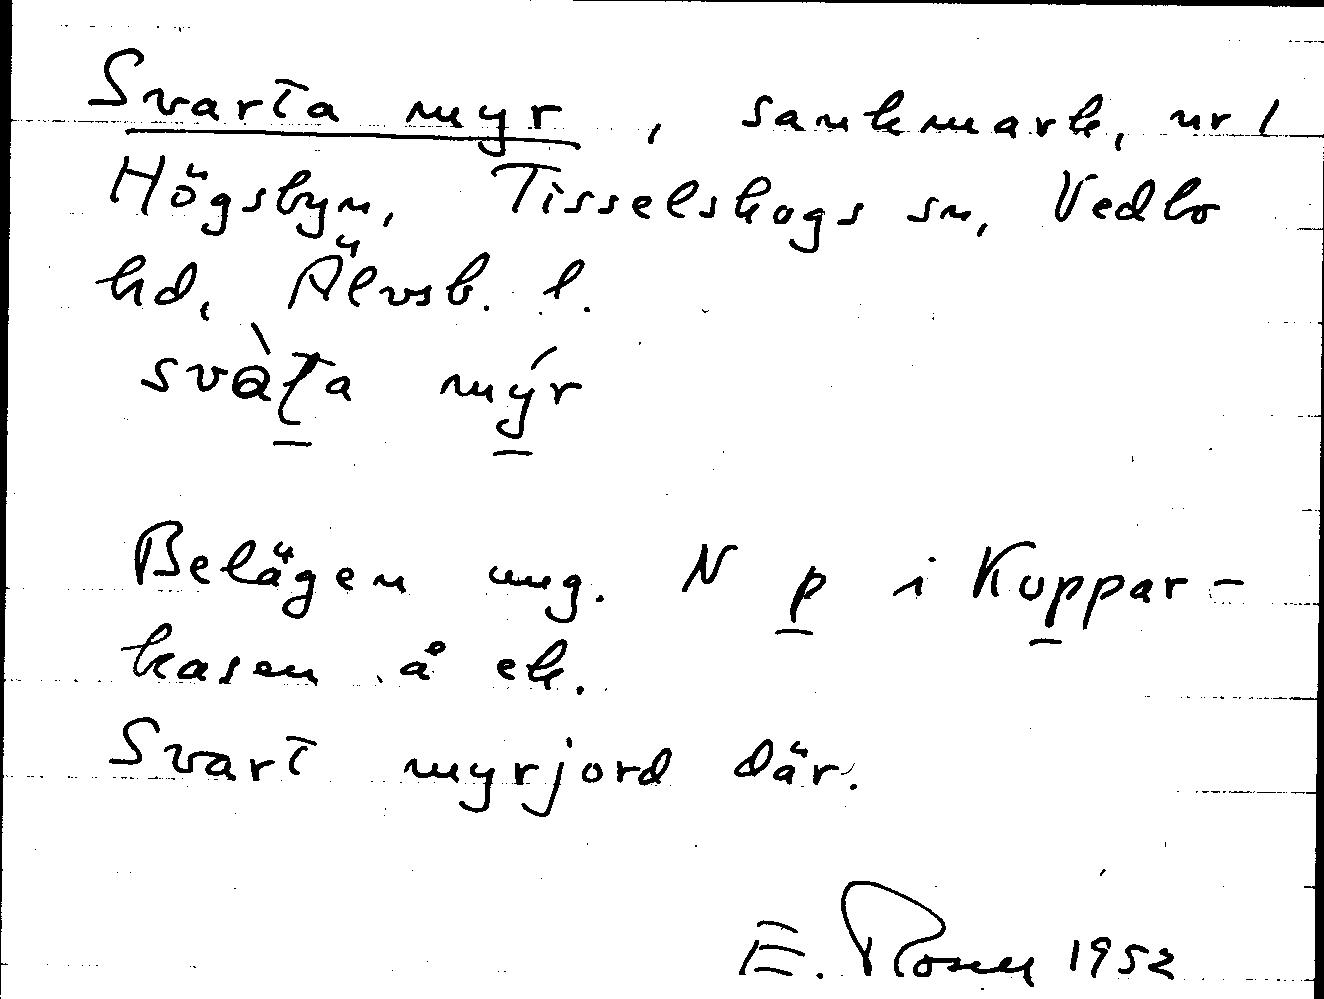 Svarta myr, sankmark, nr 1
Högsbyn, Tisselskogs sn, Vedbo
hd, Älvsb. l.
svàʈa mýr
Belägen ung. N p i Kuppar-
kasen å ek.
Svart myrjord där.
E. Rosell 1952